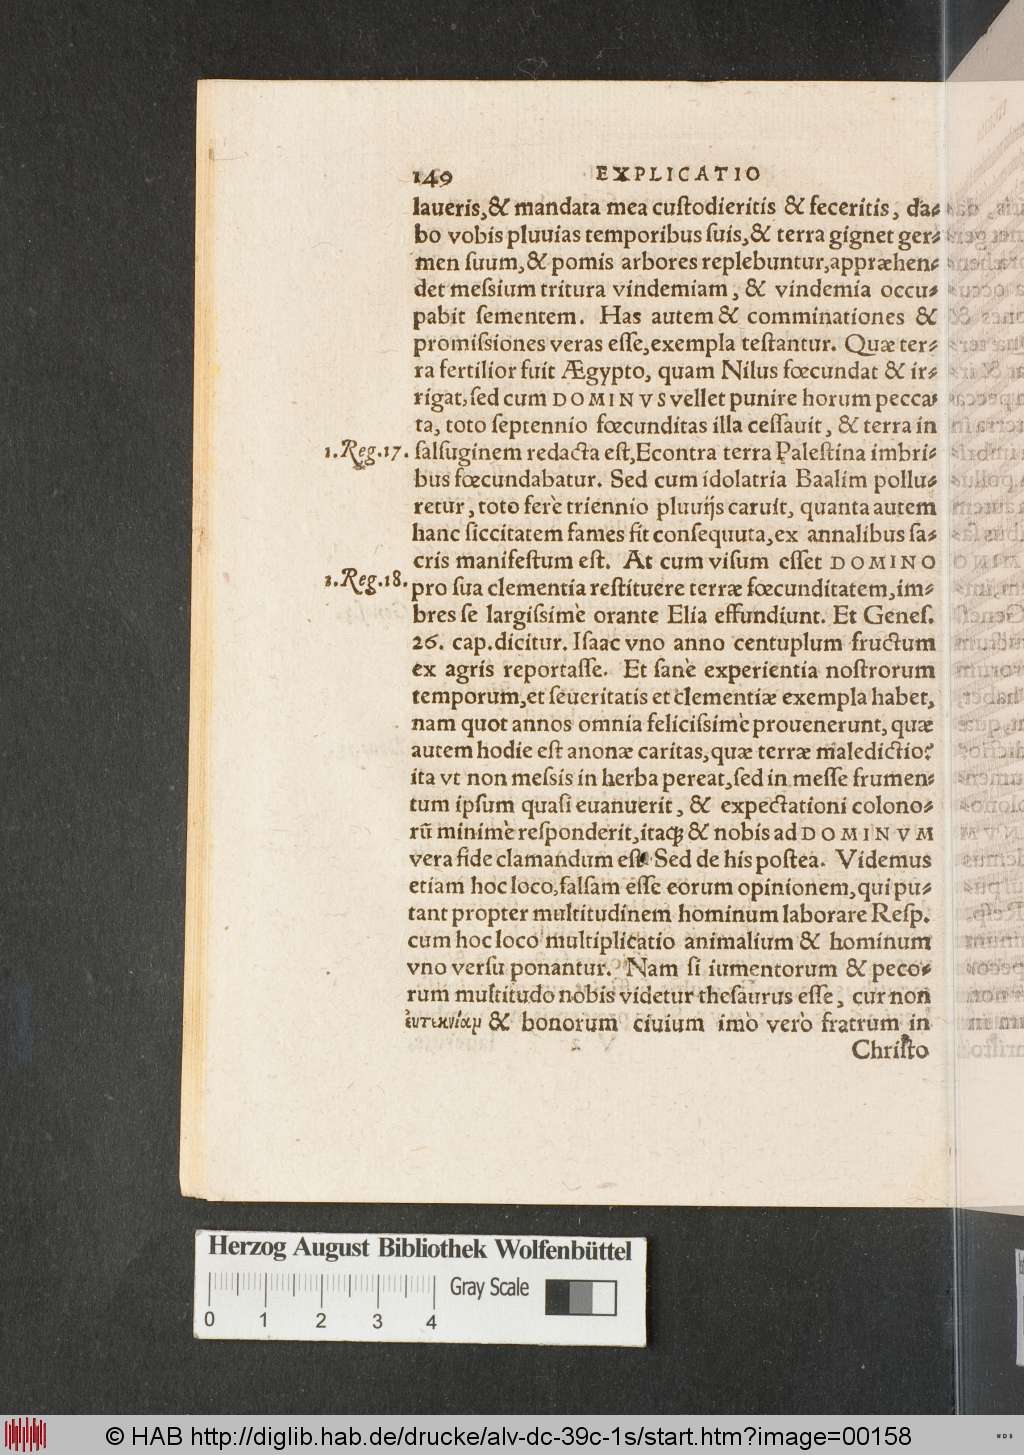 149 EXPLICATIO
laueris,& mandata mea cuſtodieritis & feceritis, da⸗
bo vobis pluuias temporibus ſuis,& terra gignet ger⸗
men ſuum,& pomis arbores replebuntur,appræhen⸗
det meſsium tritura vindemiam, & vindemia occu⸗
pabit ſementem. Has autem & comminationes &
promiſsiones veras eſſe,exempla teſtantur. Quæ ter⸗
ra fertilior fuit Ægypto, quam Nilus fœcundat & ir⸗
rigat,ſed cum DOMINVS vellet punire horum pecca⸗
ta, toto ſeptennio fœcunditas illa ceſſauit, & terra in
1.Reg.17. ſalſuginem redacta eſt,Econtra terra Paleſtina imbri⸗
bus fœcundabatur. Sed cum idolatria Baalim pollu⸗
retur, toto ferè triennio pluuijs caruit, quanta autem
hanc ſiccitatem fames ſit conſequuta,ex annalibus ſa⸗
cris manifeſtum eſt. At cum viſum eſſet DOMINO
1.Reg.18. pro ſua clementia reſtituere terræ fœcunditatem,im⸗
bres ſe largiſsimè orante Elia effundiunt. Et Geneſ.
26. cap.dicitur. Iſaac vno anno centuplum fructum
ex agris reportaſſe. Et ſanè experientia noſtrorum
temporum,et ſeueritatis et clementiæ exempla habet,
nam quot annos omnia feliciſsimè prouenerunt, quæ
autem hodie eſt anonæ caritas,quæ terræ maledictio?
ita vt non meſsis in herba pereat,ſed in meſſe frumen⸗
tum ipſum quaſi euanuerit, & expectationi colono⸗
rū minimè reſponderit,itaq; & nobis ad DOMINVM
vera fide clamandum eſt. Sed de his poſtea. Videmus
etiam hoc loco,falſam eſſe eorum opinionem,qui pu⸗
tant propter multitudinem hominum laborare Reſp.
cum hoc loco multiplicatio animalium & hominum
vno verſu ponantur. Nam ſi iumentorum & peco⸗
rum multitudo nobis videtur theſaurus eſſe, cur non
ἐυτεκνίαμ & bonorum ciuium imò verò fratrum in
Chriſto
Herzog August Bibliothek Wolfenbüttel
Gray Scale
0 1 2 3 4
© HAB http://diglib.hab.de/drucke/alv-dc-39c-1s/start.htm?image=00158